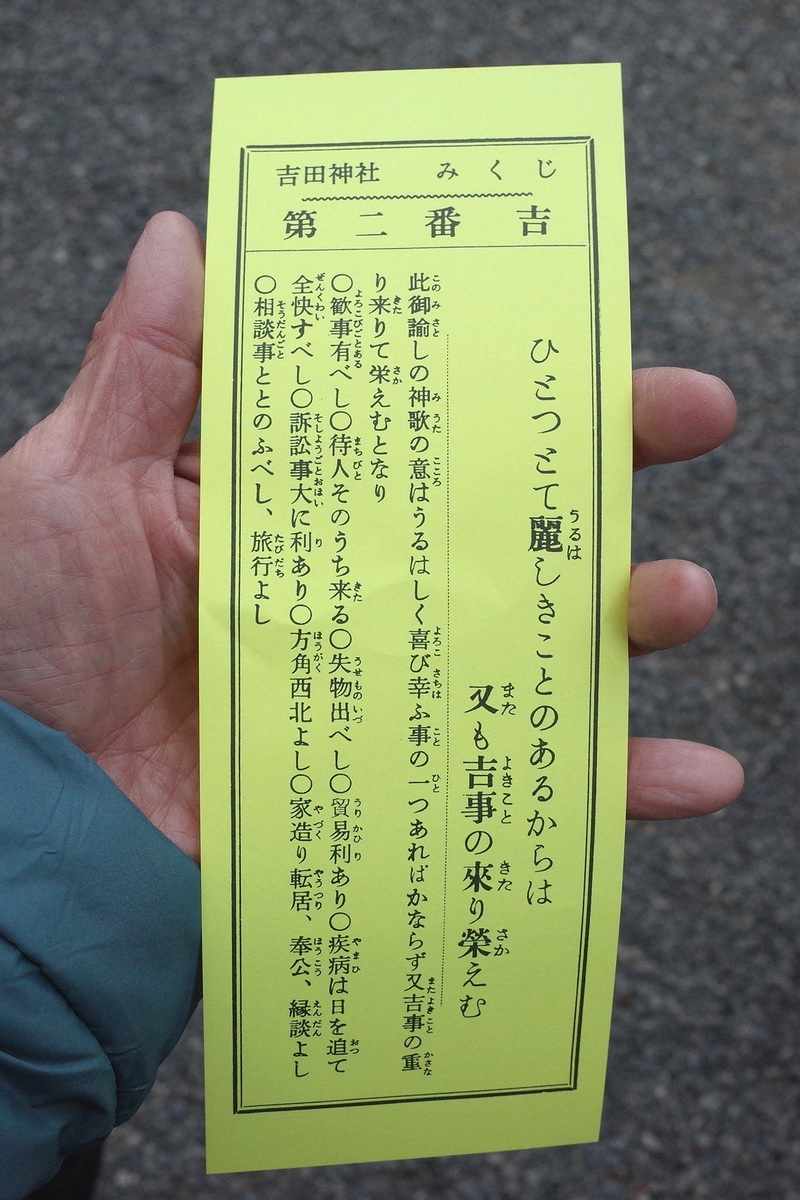 吉田神社　みくじ
第二番吉
ひとつとて麗しきことのあるからは
又も吉事の來り榮えむ
此御諭しの神歌の意はうるはしく喜び幸ふ事の一つあればかならず又吉事の重
り来りて栄えむとなり
〇歓事有べし〇待人そのうち来る〇失物出べし〇貿易利あり〇疾病は日を追て
全快すべし〇訴訟事大に利あり〇方角西北よし〇家造り転居、奉公、縁談よし
〇相談事ととのふべし、旅行よし